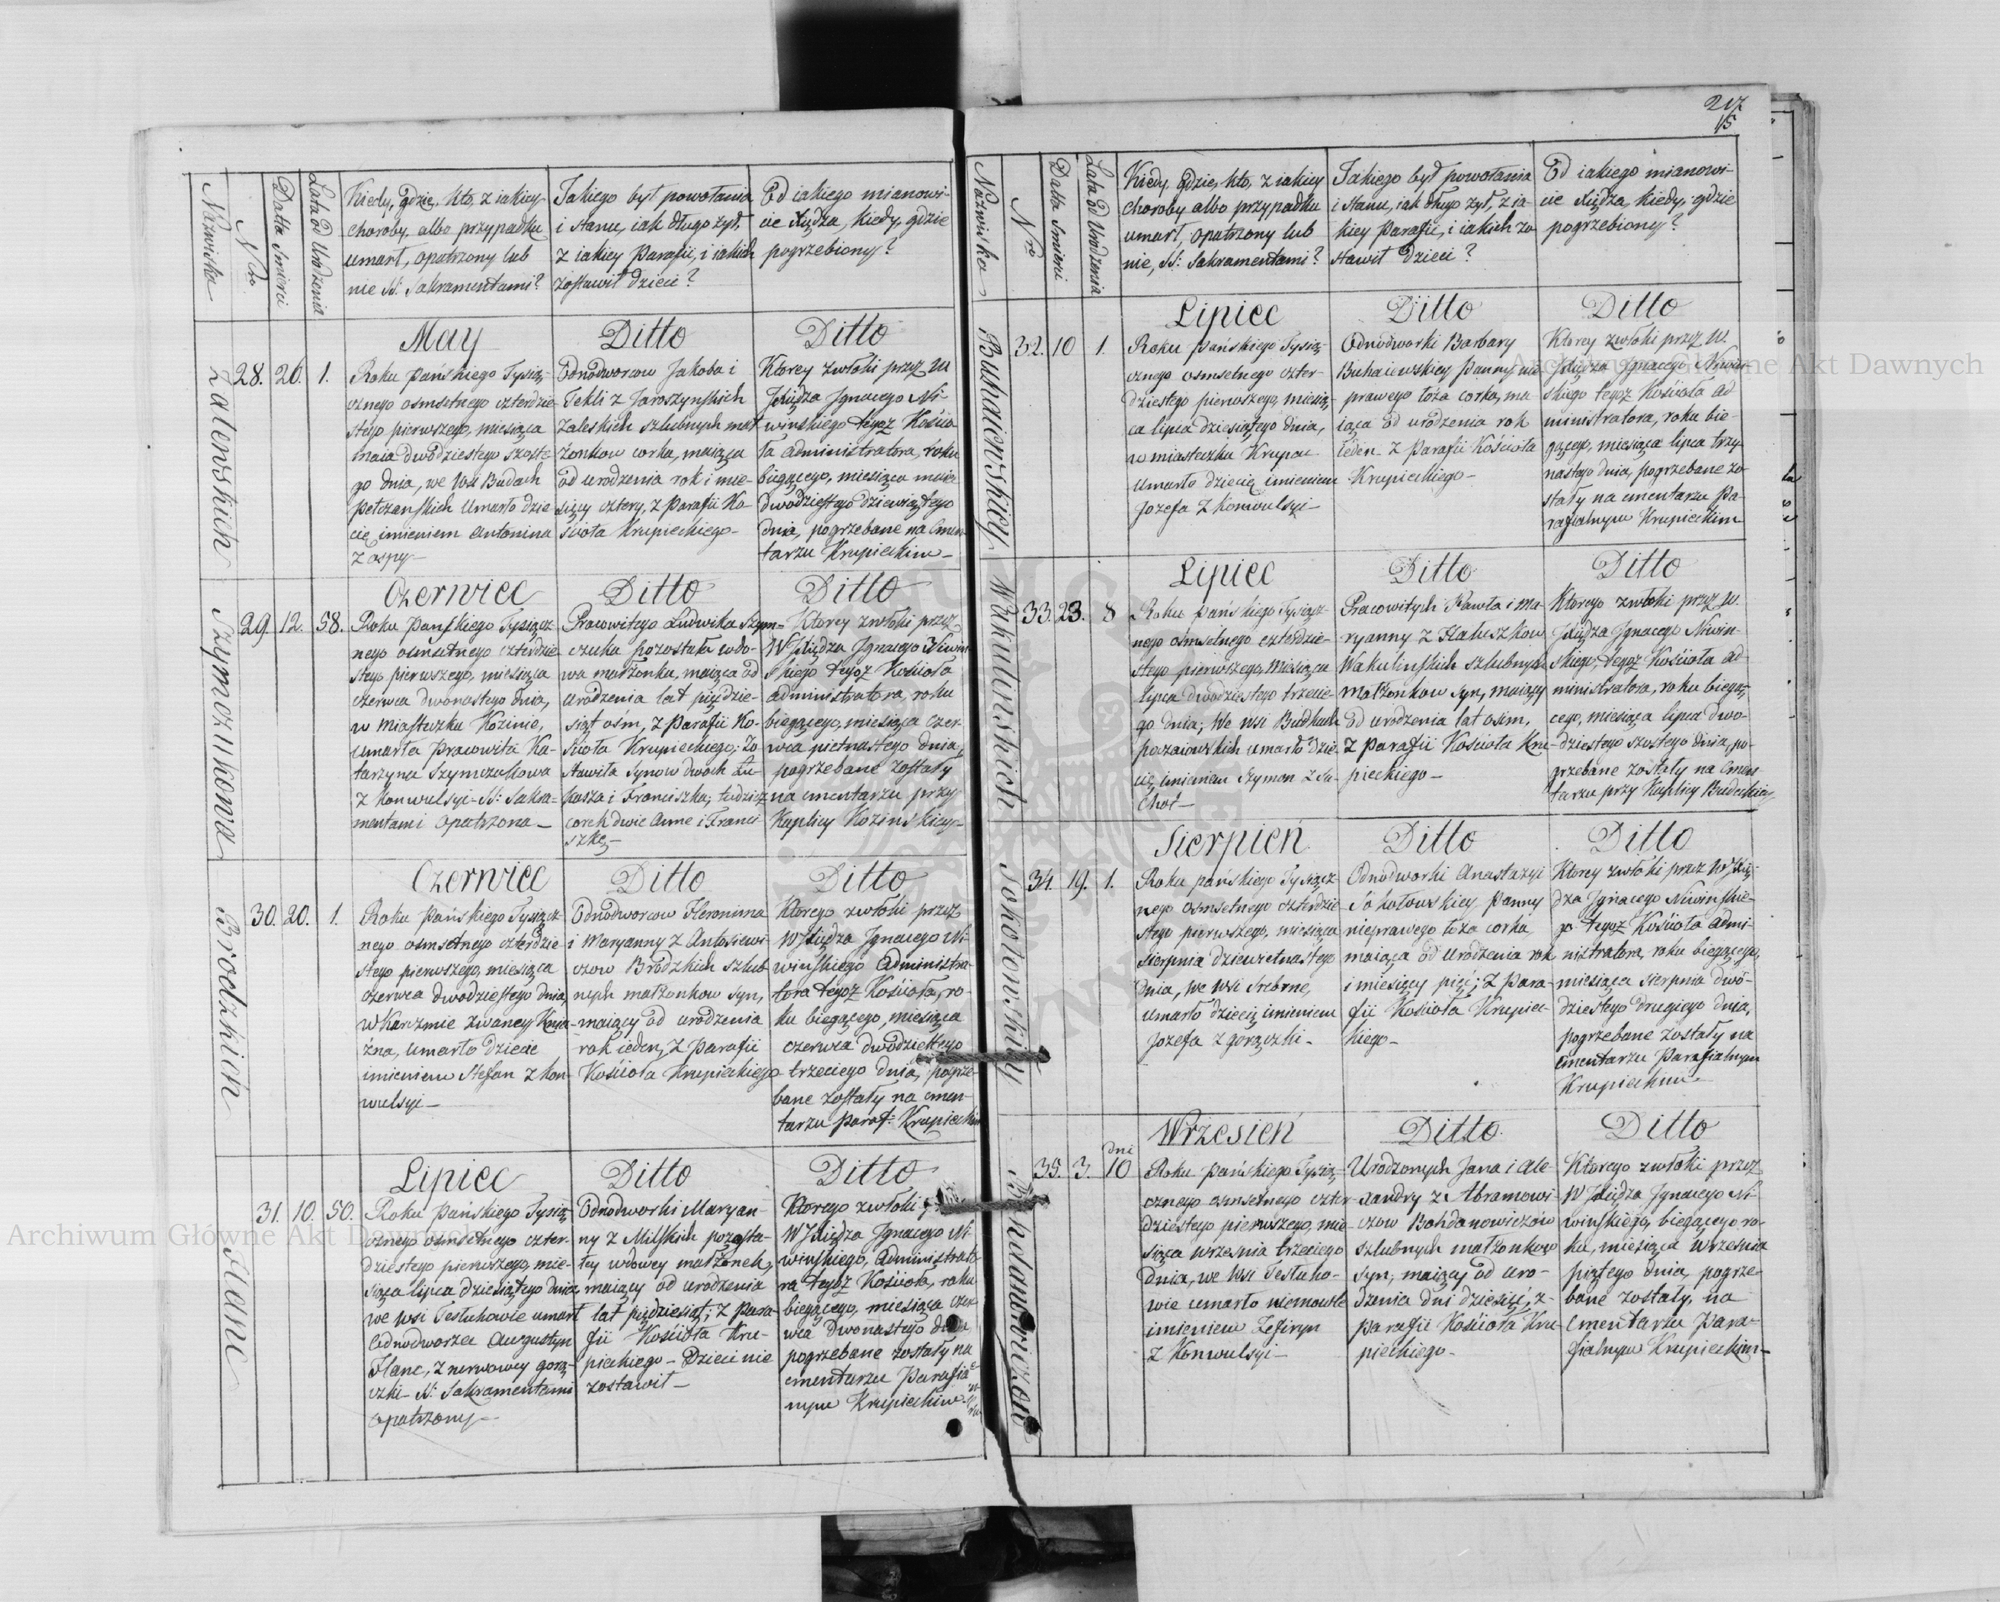 217
15
Nazwiska
Nro
Datta Smierci
Lata od Urodzenia
Kiedy, gdzie, kto, z iakiey
choroby, albo przypadku
umarł, opatrzony lub
nie SS: Sakramentami?
Jakiego był powołania
i stanu, iak długo żył,
z iakiey Parafii, i iakich
zostawił dzieci?
Od iakiego mianowi-
cie Xiędza, kiedy, gdzie
pogrzebiony?
Zalewskich
28. 26. 1.
May
Roku Pańskiego Tysią-
cznego osmsetnego czterdzie-
stego pierwszego, miesiąca
maia dwódziestego szoste-
go dnia, we Wsi Budach
umarło dzie-
cię imieniem Antonina
z ospy
Ditto
Odnodworcow Jakoba i
Tekli z Jaroszyńskich
Zaleskich szlubnych mał-
żonkow corka, maiąca
od urodzenia rok i mie-
sięcy cztery, z Parafii Ko-
ścioła Krupieckiego
Ditto
Ktorey zwłoki przez W
Xiędza Jgnacego Ni-
wińskiego tegoż Kościo-
ła administratora, roku
biegącego, miesiąca maia
dwódziestego dziewiątego
dnia, pogrzebane na Cmen-
tarzu Krupieckim
Szymczukowa
29. 12. 58.
Czerwiec
Roku Pańskiego Tysiącz-
nego ośmsetnego czterdzie-
stego pierwszego, miesiąca
czerwca dwónastego dnia,
w Miasteczku Kozinie,
umarła Pracowita Ka-
tarzyna Szymczukowa
z Konwulsyi SS: Sakra-
mentami opatrzona
Ditto
Pracowitego Ludwika Szym-
czuka pozostała wdo-
wa małżonka, maiąca od
urodzenia lat pięćdzie-
siąt ośm, z Parafii Ko-
ścioła Krupieckiego; Zo-
stawiła Synow dwoch Łu-
kasza i Franciszka, tudzież
corek dwie Anne i Franci-
szkę
Ditto
Ktorey zwłoki przez
W Xiędza Jgnacego Niwiń-
skiego tegoż Kościoła
administratora, roku
biegącego, miesiąca czer-
wca pietnastego dnia,
pogrzebane zostały
na cmentarzu przy
Kaplicy Kozińskiey
Brodzkich
30. 20. 1.
Czerwiec
Roku Pańskiego Tysiącz-
nego osmsetnego czterdzie-
stego pierwszego, miesiąca
czerwca dwodziestego dnia,
w Karczmie zwaney Knia-
źna, umarło dziecie
imieniem Stefan z Kon-
wulsyi
Ditto
Odnodworcow Hieronima
i Maryanny z Antosiewi-
czow Brodzkich szlub-
nych małżonkow syn,
maiący od urodzenia
rok ieden, z Parafii
Kościoła Krupieckiego
Ditto
Ktorego zwłoki przez
W Xiędza Jgnacego Ni-
wińskiego Administra-
tora tegoż Kościoła, ro-
ku biegącego, miesiąca
czerwca dwodziestego
trzeciego dnia, pogrze-
bane zostały na cmen-
tarzu Paraf: Krupieckim
Hanc
31. 10. 50.
Lipiec
Roku Pańskiego Tysią-
cznego osmsetnego czter-
dziestego pierwszego, mie-
siąca lipca dziesiątego dnia,
we wsi Tesłuhowie umarł
Odnodworzec Augustyn
Hanc, z nerwowey gorą-
czki SS: Sakramentami
opatrzony
Ditto
Odnodworki Maryan-
ny z Milskich pozosta-
łey wdowey małżonek,
maiący od urodzenia
lat pięćdziesiąt; z Para-
fii Kościoła Kru-
pieckiego Dzieci nie
zostawił
Ditto
Ktorego zwłoki
W Xiędza Jgnacego Ni-
wińskiego, Administrato-
ra tegoż Kościoła, roku
biegącego, miesiąca czer-
wca dwónastego dnia
pogrzebane zostały na
cmentarzu Parafial-
nym Krupieckim
Nazwiska
Nro
Datta Smierci
Lata od Urodzenia
Kiedy, gdzie, kto, z iakiey
choroby albo przypadku
umarł, opatrzony lub
nie, SS: Sakramentami?
Jakiego był powołania
i stanu, iak długo żył, z ia-
kiey Parafii, i iakich zo-
stawił dzieci?
Od iakiego mianowi-
cie Xiędza, kiedy, gdzie
pogrzebiony?
Buhaiewskiey
32. 10 1.
Lipiec
Roku Pańskiego Tysią-
cznego osmsetnego czter-
dziestego pierwszego, miesią-
ca lipca dziesiątego dnia,
w miasteczku Krupcu
umarło dziecię imieniem
Jozefa z Konwulsyi
Ditto
Odnodworki Barbary
Buhaiewskiey Panny nie-
prawego łoża corka, ma-
iąca od urodzenia rok
ieden z Parafii Kościoła
Krupieckiego
Ditto
Ktorey zwłoki przez W.
Xiędza Jgnacego Niwiń-
skiego tegoż Kościoła ad-
ministratora, roku bie-
gącego, miesiąca lipca trzy-
nastego dnia, pogrzebane zo-
stały na cmentarzu Pa-
rafialnym Krupieckim
Wakulińskich
33. 23. 8
Lipiec
Roku Pańskiego Tysiącz-
nego osmsetnego czterdzie-
stego pierwszego, Miesiąca
lipca dwudziestego trzecie-
go dnia; we wsi Budkach
poczaiowskich umarło dzie-
cię imieniem Szymon z Su-
chot
Ditto
Pracowitych Pawła i Ma-
ryanny z Hałuszkow
Wakulińskich szlubnych
małżonkow syn, maiący
od urodzenia lat osim,
z Parafii Kościoła Kru-
pieckiego
Ditto
Ktorego zwłoki przez W.
Xiędza Jgnacego Niwiń-
skiego, tegoż Kościoła ad-
ministratora, roku biegą-
cego, miesiąca lipca dwo-
dziestego szostego dnia, po-
grzebane zostały na Cmen-
tarzu przy Kaplicy Budeckiey
Sokołowskiey
34. 19. 1.
Sierpień
Roku Pańskiego Tysiącz-
nego osmsetnego czterdzie-
stego pierwszego, miesiąca
sierpnia dziewietnastego
dnia, we wsi Srebrne,
umarło dziecię imieniem
Jozefa z gorączki
Ditto
Odnodworki Anastazyi
Sokołowskiey Panny
nieprawego łoża corka,
maiąca od urodzenia rok
i miesięcy pięć; z Para-
fii Kościoła Krupiec-
kiego
Ditto
Ktorey zwłoki przez W Xię-
dza Jgnacego Niwińskie-
go tegoż Kościoła admi-
nistratora, roku biegącego,
miesiąca sierpnia dwó-
dziestego drugiego dnia,
pogrzebane zostały na
cmentarzu Parafialnym
Krupieckim
Bohdanowiczow
35. 3. dni 10
Wrzesień
Roku Pańskiego Tysią-
cznego osmsetnego czter-
dziestego pierwszego, mie-
siąca września trzeciego
dnia, we wsi Tesłuho-
wie umarło niemowle
imieniem Zefiryn
z Konwulsyi
Ditto
Urodzonych Jana i Ale-
xandry z Abramowi-
czow Bohdanowiczow
szlubnych małżonkow
syn, maiący od uro-
dzenia dni dziesięć, z
parafii Kościoła Kru-
pieckiego
Ditto
Ktorego zwłoki przez
W Xiędza Jgnacego Ni-
wińskiego, biegącego ro-
ku, miesiąca Września
piątego dnia, pogrze-
bane zostały, na
Cmentarzu Para-
fialnym Krupieckim
Archiwum Główne Akt Dawnych
Archiwum Główne Akt Dawnych
Archiwum Główne Akt Dawnych
Archiwum Główne Akt Dawnych